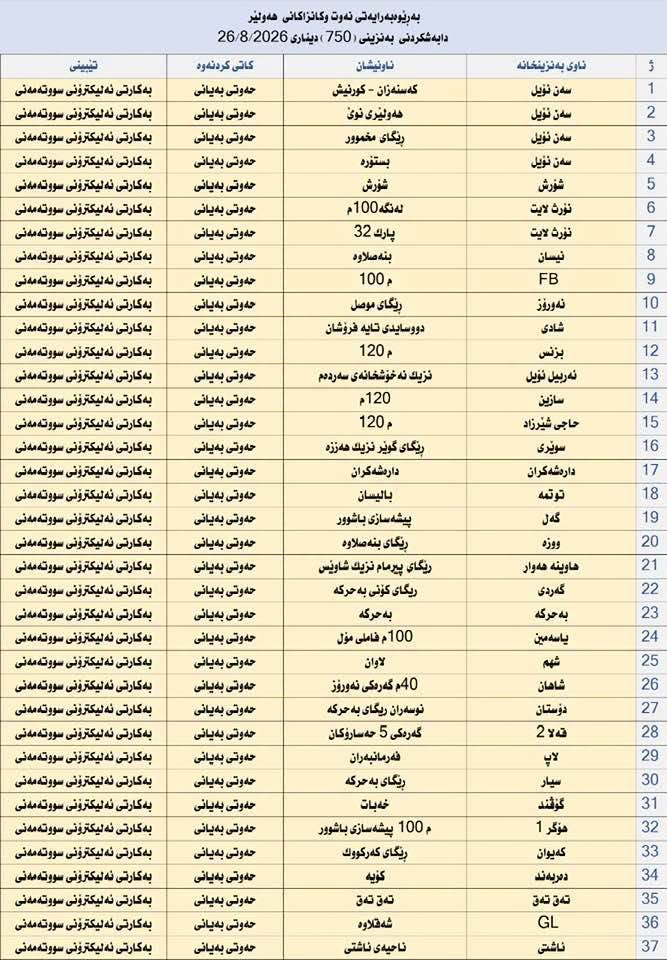 بەڕێوەبەرایەتی نەوت وکانزاکانی هەولێر
دابەشکردنی بەنزینی (750) دیناری 26/8/2026
ژ ناوی بەنزینخانە ناونیشان کاتی کردنەوە تێبینی
1 سەن ئۆیل کەسنەزان - کورنیش حەوتی بەیانی بەکارتی ئەلیکترۆنی سووتەمەنی
2 سەن ئۆیل هەولێری نوێ حەوتی بەیانی بەکارتی ئەلیکترۆنی سووتەمەنی
3 سەن ئۆیل ڕێگای مخموور حەوتی بەیانی بەکارتی ئەلیکترۆنی سووتەمەنی
4 سەن ئۆیل بستۆرە حەوتی بەیانی بەکارتی ئەلیکترۆنی سووتەمەنی
5 شۆرش شۆرش حەوتی بەیانی بەکارتی ئەلیکترۆنی سووتەمەنی
6 نۆرث لایت لەنگە100م حەوتی بەیانی بەکارتی ئەلیکترۆنی سووتەمەنی
7 نۆرث لایت پارك 32 حەوتی بەیانی بەکارتی ئەلیکترۆنی سووتەمەنی
8 نیسان بنەصلاوە حەوتی بەیانی بەکارتی ئەلیکترۆنی سووتەمەنی
9 FB 100 م حەوتی بەیانی بەکارتی ئەلیکترۆنی سووتەمەنی
10 نەورۆز ڕێگای موصل حەوتی بەیانی بەکارتی ئەلیکترۆنی سووتەمەنی
11 شادی دووسایدی تایە فرۆشان حەوتی بەیانی بەکارتی ئەلیکترۆنی سووتەمەنی
12 بزنس 120 م حەوتی بەیانی بەکارتی ئەلیکترۆنی سووتەمەنی
13 ئەربیل ئۆیل نزیك نەخۆشخانەی سەردەم حەوتی بەیانی بەکارتی ئەلیکترۆنی سووتەمەنی
14 سازین 120م حەوتی بەیانی بەکارتی ئەلیکترۆنی سووتەمەنی
15 حاجی شێرزاد 120 م حەوتی بەیانی بەکارتی ئەلیکترۆنی سووتەمەنی
16 سوێری ڕێگای گوێر نزیك هەززە حەوتی بەیانی بەکارتی ئەلیکترۆنی سووتەمەنی
17 دارەشەکران دارەشەکران حەوتی بەیانی بەکارتی ئەلیکترۆنی سووتەمەنی
18 توتمە بالیسان حەوتی بەیانی بەکارتی ئەلیکترۆنی سووتەمەنی
19 گەل پیشەسازی باشوور حەوتی بەیانی بەکارتی ئەلیکترۆنی سووتەمەنی
20 ووزە ڕێگای بنەصلاوە حەوتی بەیانی بەکارتی ئەلیکترۆنی سووتەمەنی
21 هاوینە هەوار رێگای پیرمام نزیك شاوێس حەوتی بەیانی بەکارتی ئەلیکترۆنی سووتەمەنی
22 گەردی ریگای کۆنی بەحرکە حەوتی بەیانی بەکارتی ئەلیکترۆنی سووتەمەنی
23 بەحرکە بەحرکە حەوتی بەیانی بەکارتی ئەلیکترۆنی سووتەمەنی
24 یاسەمین 100م فاملی مۆل حەوتی بەیانی بەکارتی ئەلیکترۆنی سووتەمەنی
25 شهم لاوان حەوتی بەیانی بەکارتی ئەلیکترۆنی سووتەمەنی
26 شاهان 40م گەرەکی نەورۆز حەوتی بەیانی بەکارتی ئەلیکترۆنی سووتەمەنی
27 دۆستان نوسەران ریگای بەحرکە حەوتی بەیانی بەکارتی ئەلیکترۆنی سووتەمەنی
28 قەلا 2 گەرەکی 5 حەسارۆکان حەوتی بەیانی بەکارتی ئەلیکترۆنی سووتەمەنی
29 لاپ فەرمانبەران حەوتی بەیانی بەکارتی ئەلیکترۆنی سووتەمەنی
30 سیار ڕێگای بەحرکە حەوتی بەیانی بەکارتی ئەلیکترۆنی سووتەمەنی
31 گۆڤند خەبات حەوتی بەیانی بەکارتی ئەلیکترۆنی سووتەمەنی
32 هۆگر 1 100 م پیشەسازی باشوور حەوتی بەیانی بەکارتی ئەلیکترۆنی سووتەمەنی
33 کەیوان ڕێگای کەرکووك حەوتی بەیانی بەکارتی ئەلیکترۆنی سووتەمەنی
34 دەربەند کۆیە حەوتی بەیانی بەکارتی ئەلیکترۆنی سووتەمەنی
35 تەق تەق تەق تەق حەوتی بەیانی بەکارتی ئەلیکترۆنی سووتەمەنی
36 GL شەقلاوە حەوتی بەیانی بەکارتی ئەلیکترۆنی سووتەمەنی
37 ئاشتی ناحیەی ئاشتی حەوتی بەیانی بەکارتی ئەلیکترۆنی سووتەمەنی